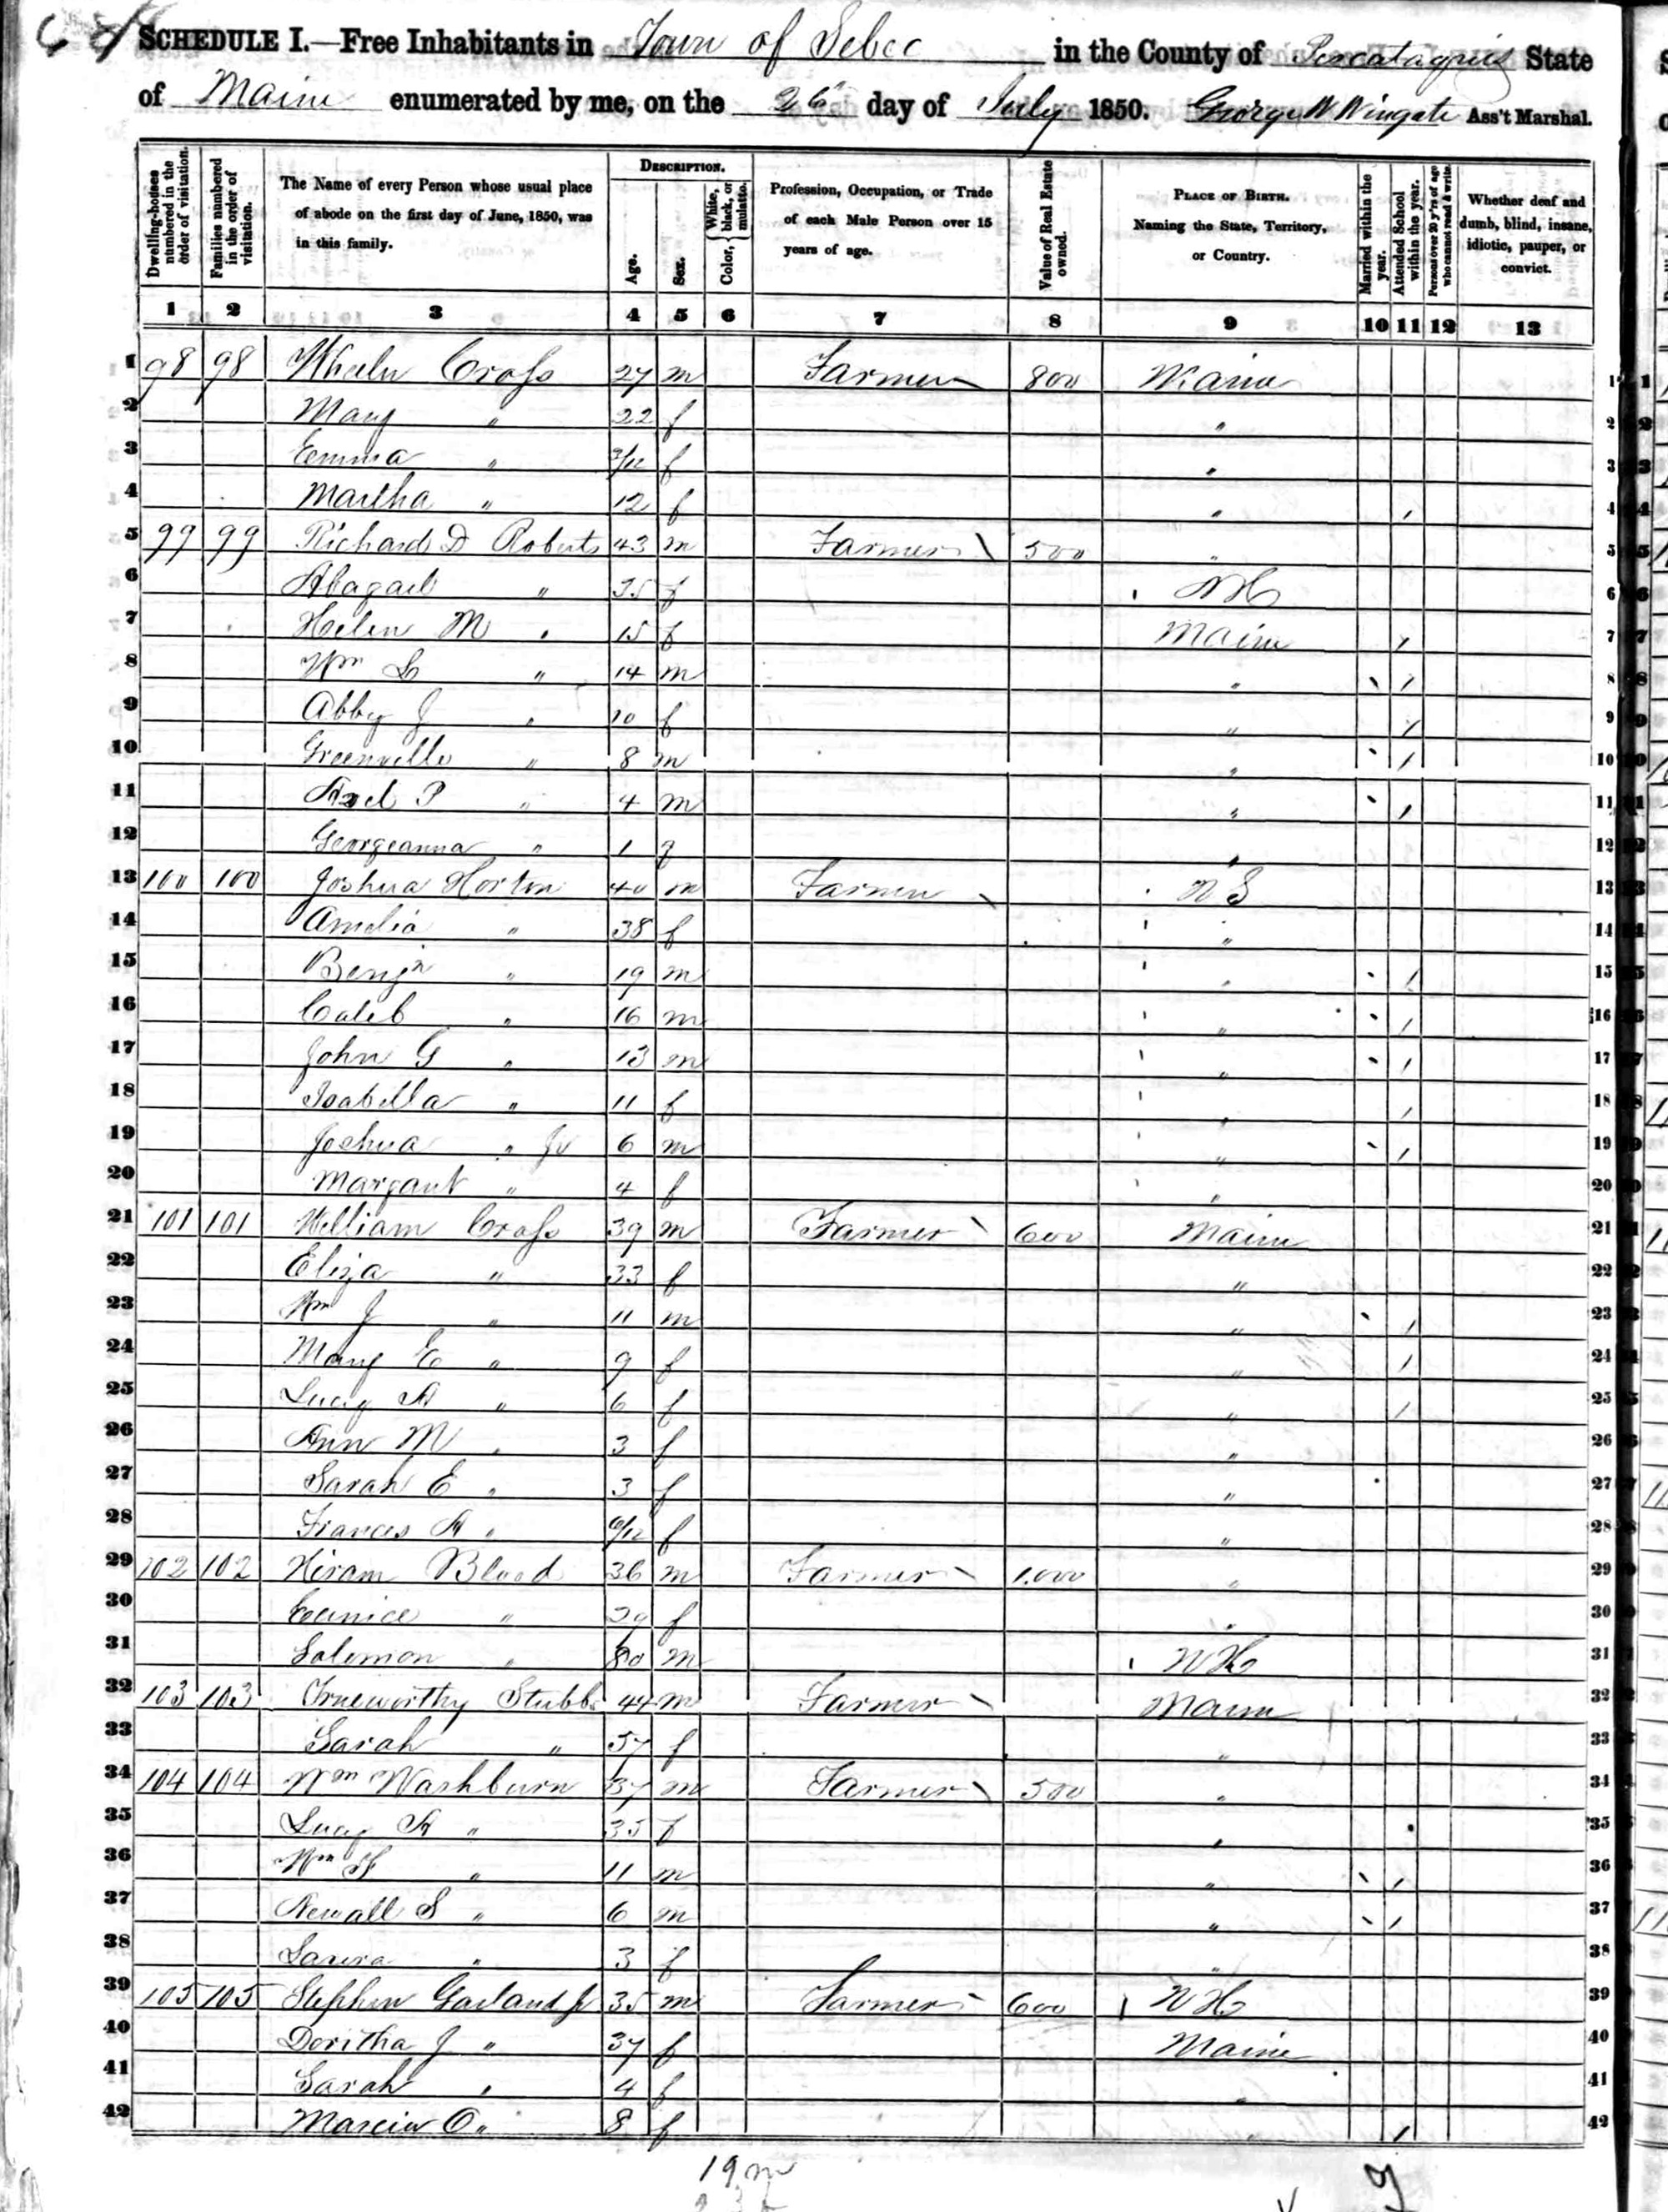 SCHEDULE I.—Free Inhabitants in Town of Sebec in the County of Piscataquis State
of Maine enumerated by me, on the 26" day of July 1850. George W Wingate Ass't Marshal.
Dwelling-houses numbered in the order of visitation. Families numbered in the order of visitation. The Name of every Person whose usual place of abode on the first day of June, 1850, was in this family. DESCRIPTION. Age. Sex. Color, { White, black, or mulatto. Profession, Occupation, or Trade of each Male Person over 15 years of age. Value of Real Estate owned. PLACE OF BIRTH. Naming the State, Territory, or Country. Married within the year. Attended School within the year. Persons over 20 y'rs of age who cannot read & write. Whether deaf and dumb, blind, insane, idiotic, pauper, or convict.
1 2 3 4 5 6 7 8 9 10 11 12 13
1 98 98 Cross 27 m Farmer 800 Maine 1
2 Mary " 22 f " 2
3 Emma " 3/12 f " 3
4 Martha " 12 f " / 4
5 99 99 Richard D Roberts 43 m Farmer \ 500 " 5
6 Abagail " 35 f NH 6
7 Helen M " 15 f Maine / 7
8 Wm " 14 m " / 8
9 Abby J " 10 f " / 9
10 Greenville " 8 m " / 10
11 P " 4 m " / 11
12 Georgeanna " 1 f " 12
13 100 100 Joshua Horton 40 m Farmer \ N S 13
14 Amelia " 38 f " 14
15 Benjn " 19 m " / 15
16 Caleb " 16 m " / 16
17 John G " 13 m " / 17
18 Isabella " 11 f " / 18
19 Joshua " Jr 6 m " / 19
20 Margaret " 4 f " 20
21 101 101 William Cross 39 m Farmer \ 600 Maine 21
22 Eliza " 33 f " 22
23 Wm J " 11 m " / 23
24 Mary E " 9 f " / 24
25 Lucy A " 6 f " / 25
26 Ann M " 3 f " 26
27 Sarah E " 3 f " 27
28 Frances A " 6/12 f " 28
29 102 102 Hiram Blood 36 m Farmer \ 1.000 " 29
30 Eunice " 29 f " 30
31 Solomon " 80 m NH 31
32 103 103 Trueworthy Stubbs 44 m Farmer \ Maine 32
33 Sarah " 57 f " 33
34 104 104 Wm Washburn 37 m Farmer \ 500 " 34
35 Lucy A " 35 f " 35
36 Wm " 11 m " / 36
37 Newall S " 6 m " / 37
38 Laura " 3 f " 38
39 105 105 Stephen Garland Jr 35 m Farmer 600 NH 39
40 Doritha J " 37 f Maine 40
41 Sarah " 4 f " 41
42 Marcia O " 8 f " / 42
19 m